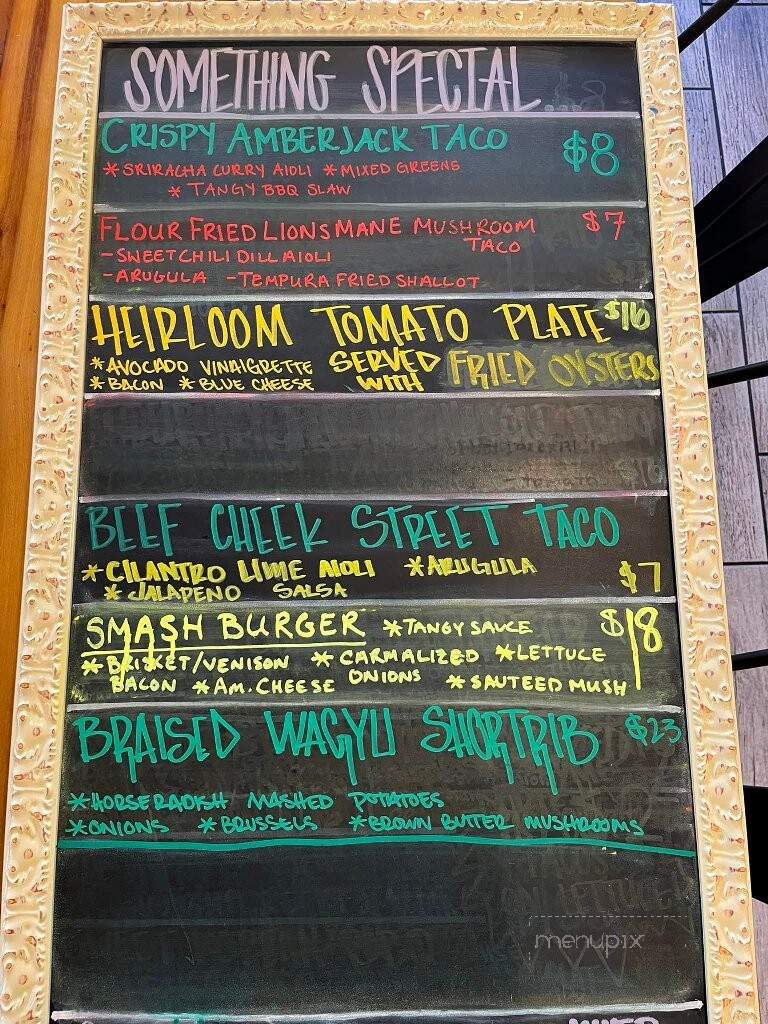 SOMETHING SPECIAL
CRISPY AMBERJACK TACO $8
*SRIRACHA CURRY AIOLI *MIXED GREENS
*TANGY BBQ SLAW
FLOUR FRIED LIONSMANE MUSHROOM $7
TACO
-SWEET CHILI DILL AIOLI
-ARUGULA -TEMPURA FRIED SHALLOT
HEIRLOOM TOMATO PLATE $16
*AVOCADO VINAIGRETTE SERVED FRIED OYSTERS
*BACON *BLUE CHEESE WITH
BEEF CHEEK STREET TACO
*CILANTRO LIME AIOLI *ARUGULA $7
*JALAPENO SALSA
SMASH BURGER *TANGY SAUCE $18
*BRISKET/VENISON *CARMALIZED *LETTUCE
BACON *AM. CHEESE ONIONS *SAUTEED MUSH
BRAISED WAGYU SHORTRIB $23
*HORSERADISH MASHED POTATOES
*ONIONS *BRUSSELS *BROWN BUTTER MUSHROOMS
menupix